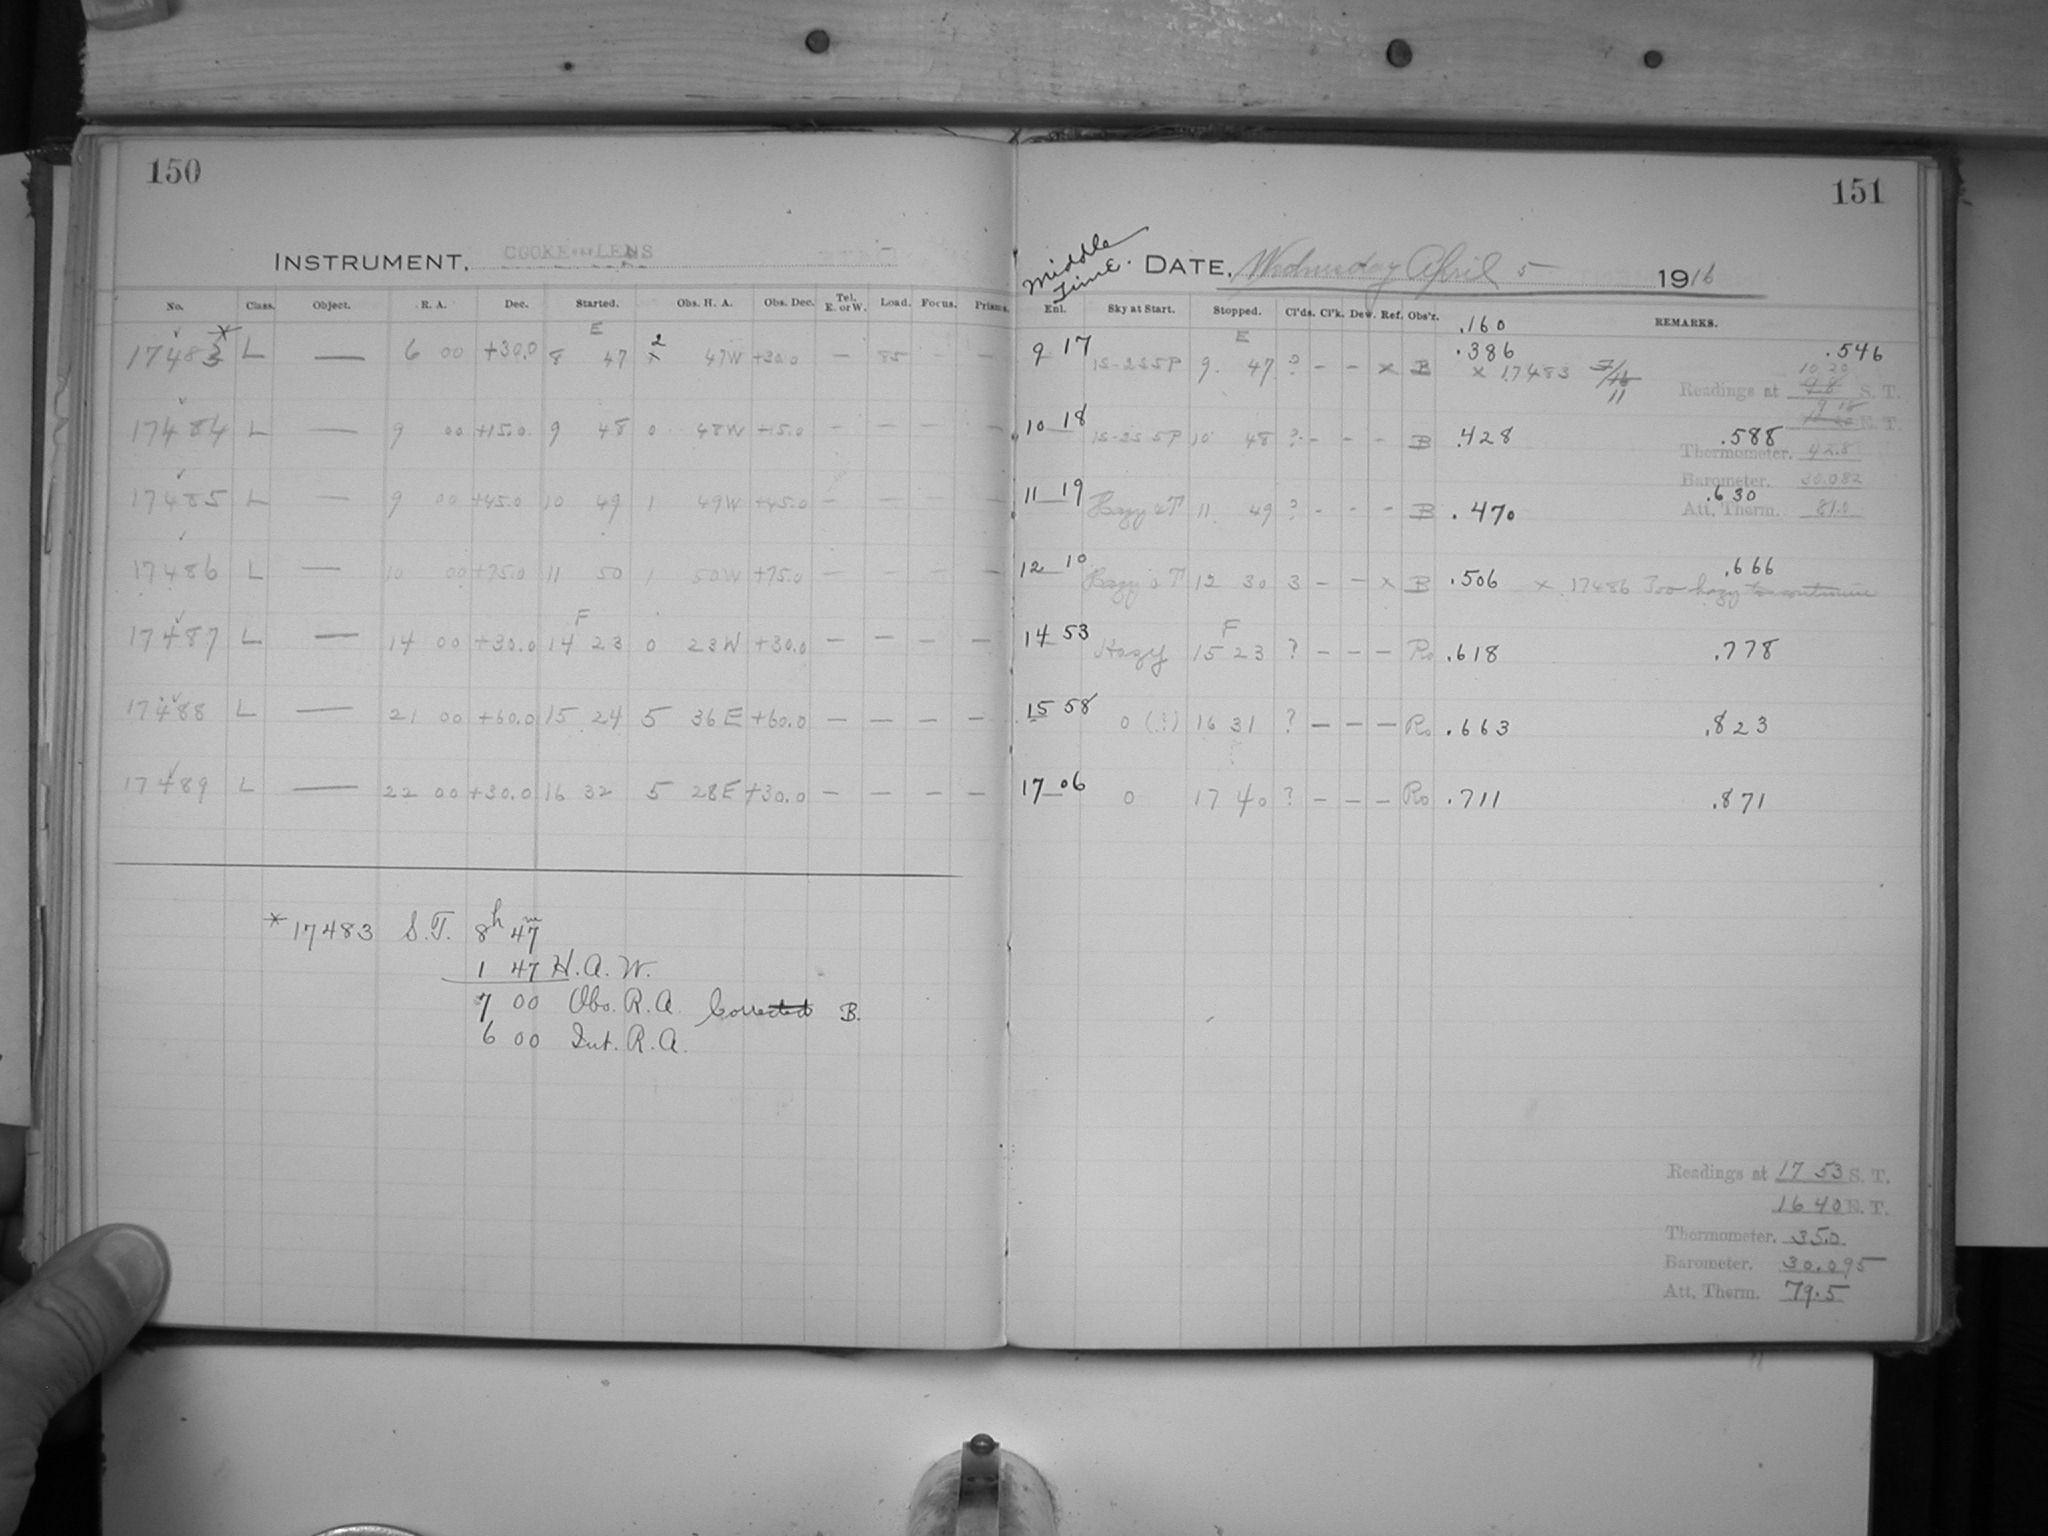 150
INSTRUMENT, COOKE LENS
No. Class. Object. R. A. Dec. Started. Obs. H. A. Obs. Dec. Tel. E. or W. Load. Focus. Prisms.
E
17483 * L — 6 00 +30.0 8 47 2 47W +30.0 — 85 — —
17484 L — 9 00 +15.0 9 48 0 48W +15.0 — — — —
17485 L — 9 00 +45.0 10 49 1 49W +45.0 — — — —
17486 L — 10 00 +75.0 11 50 1 50W +75.0 — — — —
F
17487 L — 14 00 +30.0 14 23 0 23W +30.0 — — — —
17488 L — 21 00 +60.0 15 24 5 36E +60.0 — — — —
17489 L — 22 00 +30.0 16 32 5 28E +30.0 — — — —
* 17483 S.T. 8h 47m
1 47 H.A.W.
7 00 Obs. R.A. Corrected B.
6 00 Int. R.A.
151
Middle Time. DATE, Wednesday April 5 1916
Enl. Sky at Start. Stopped. Cl'ds. Cl'k. Dew. Ref. Obs'r. REMARKS.
.160
E
9 17 1S-2S5P 9 47 ? - - x B .386 x 17483 .546
10 20
Readings at S. T.
E. T.
10 18 1S-2S5P 10 48 ? - - - B .428 .588
Thermometer. 42.8
Barometer. 30.082
11 19 Hazy 11 49 ? - - - B .470 .630
Att. Therm. 81.0
12 10 Hazy 12 30 3 - - x B .506 x 17486 Too hazy to continue .666
F
14 53 Hazy 15 23 ? — — — Ro .618 .778
15 58 0 (?) 16 31 ? — — — Ro .663 .823
17 06 0 17 40 ? — — — Ro .711 .871
Readings at 17 53 S. T.
16 40 E. T.
Thermometer. 35.0
Barometer. 30.095
Att. Therm. 79.5